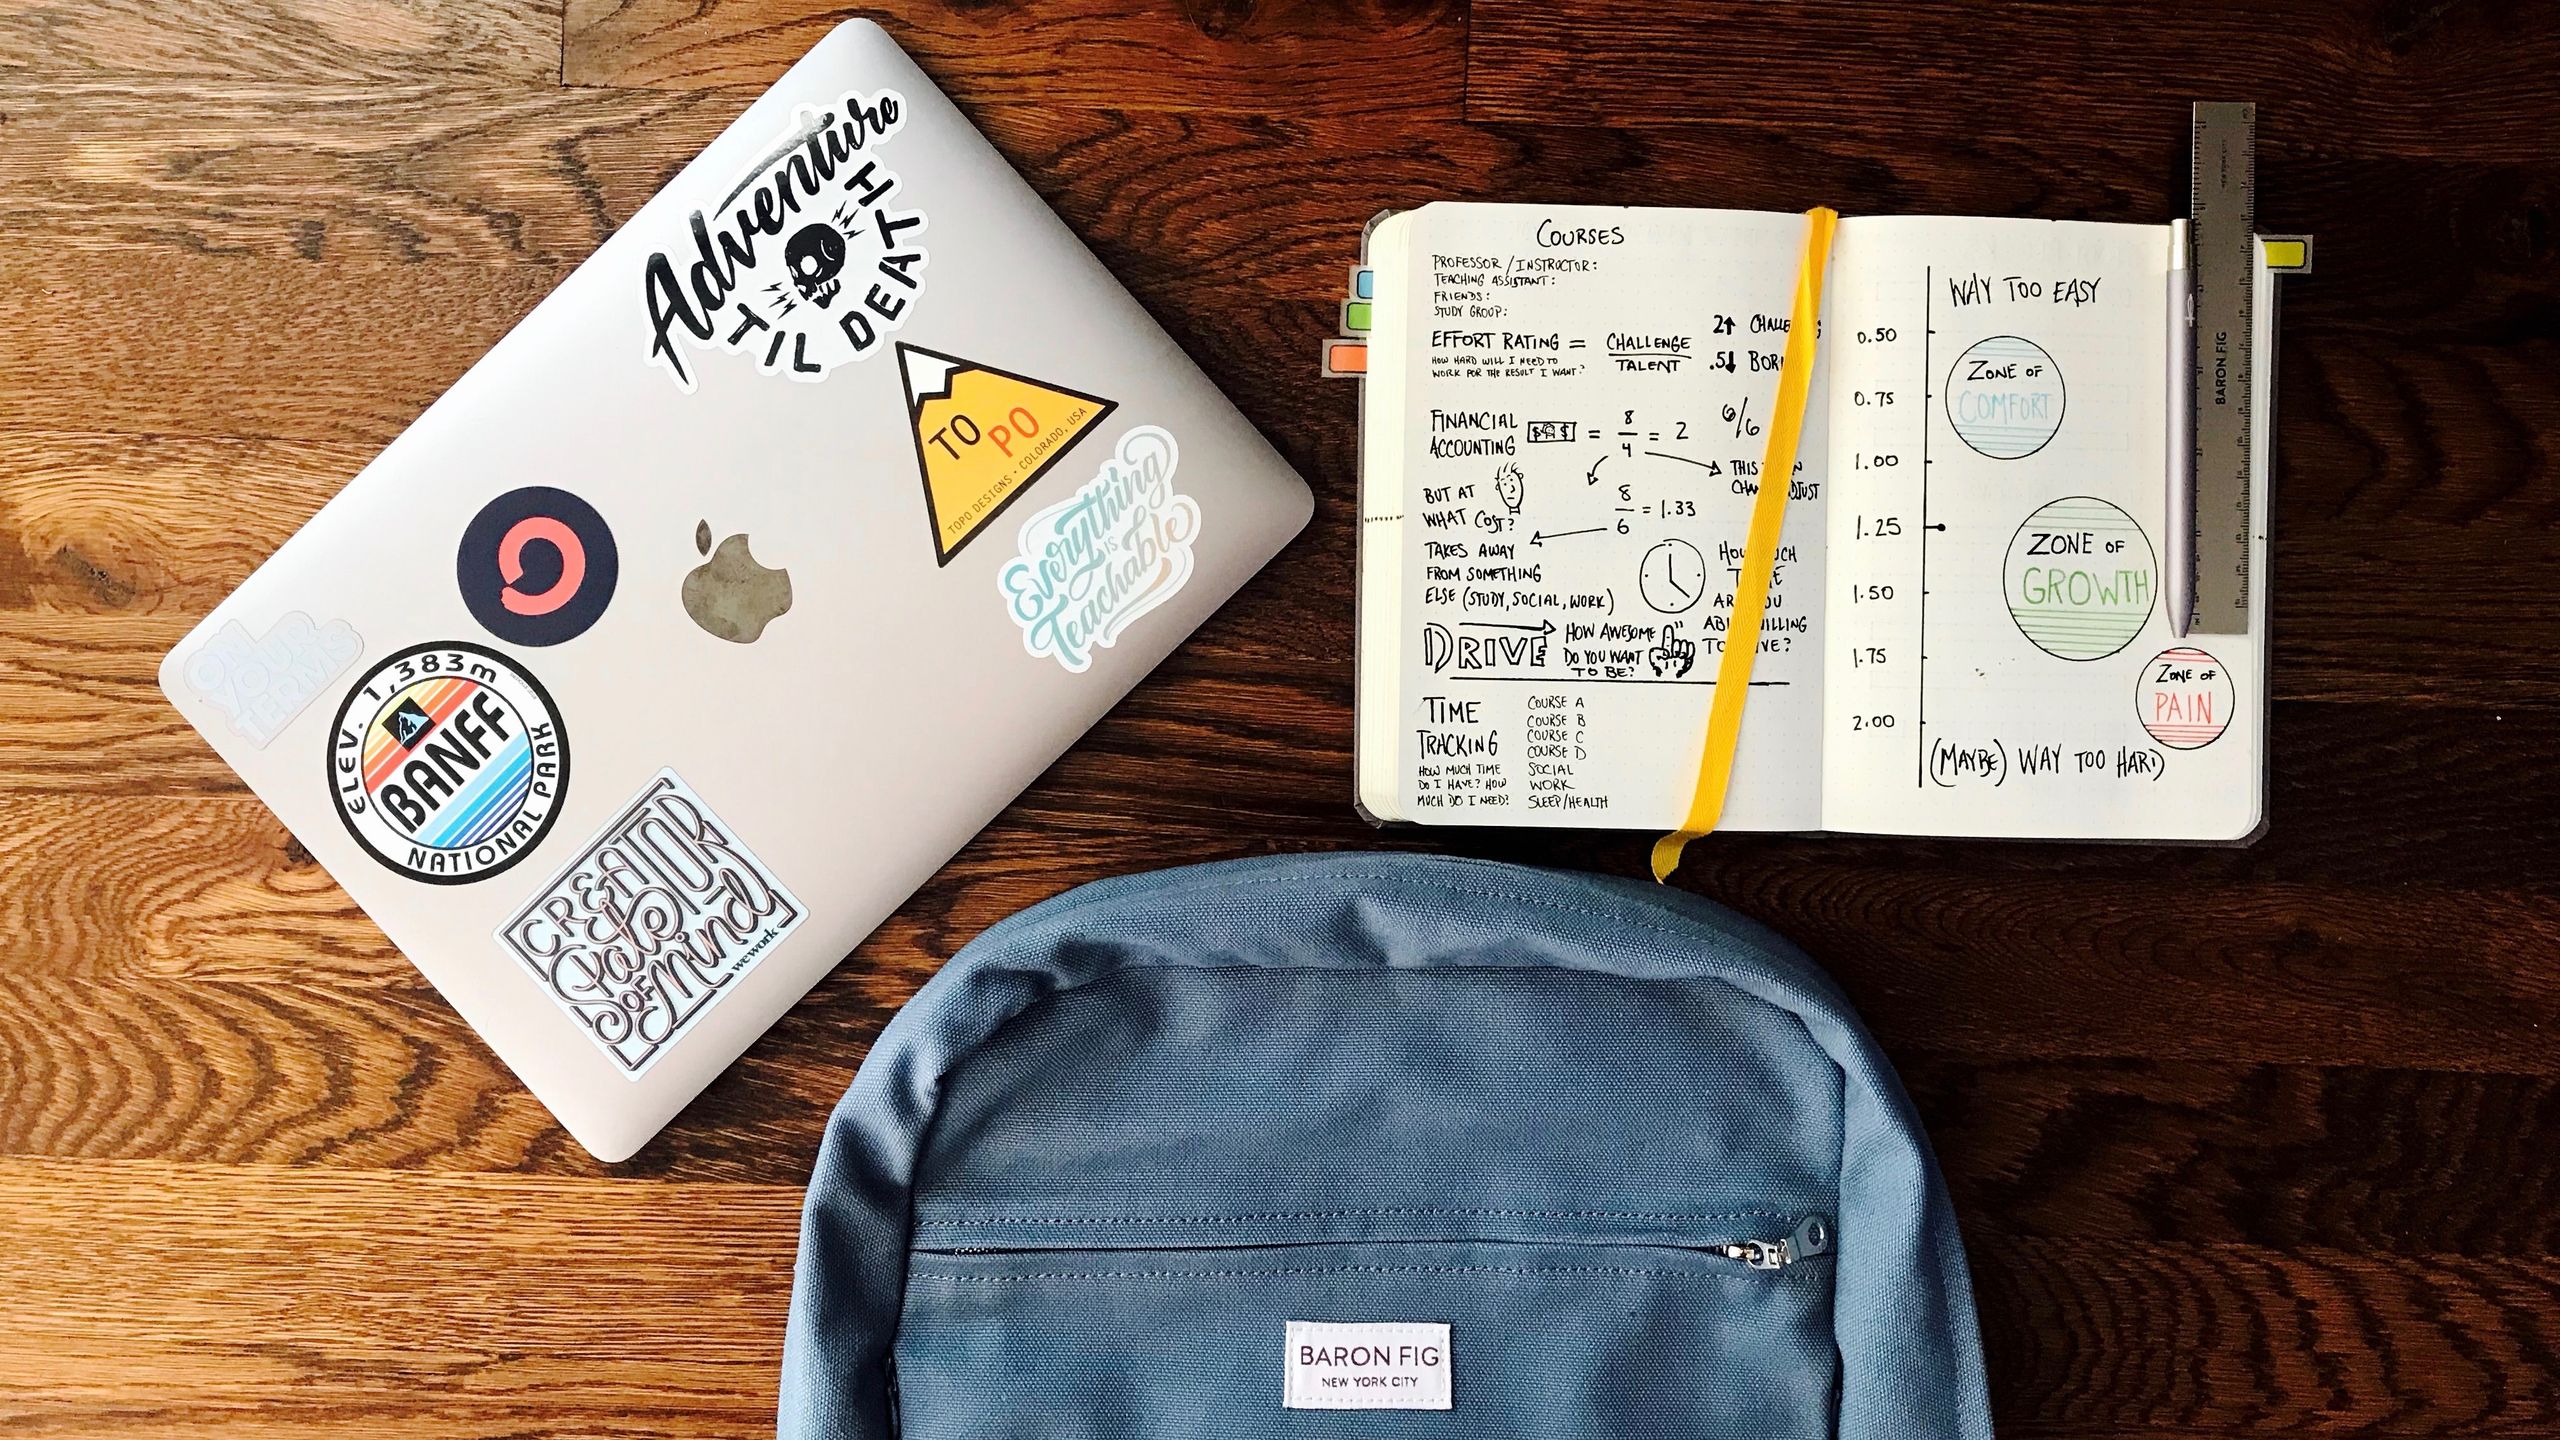 Adventure
TIL DEATH
TO
PO
TOPO DESIGNS · COLORADO, USA
Everything
IS
Teachable
ON
YOUR
TERMS
ELEV. 1,383m
BANFF
NATIONAL PARK
CREATOR
State
OF
Mind
wework
COURSES
PROFESSOR/INSTRUCTOR:
TEACHING ASSISTANT:
FRIENDS:
STUDY GROUP:
EFFORT RATING = CHALLENGE
TALENT
HOW HARD WILL I NEED TO
WORK FOR THE RESULT I WANT?
2↑
.5↓
FINANCIAL
ACCOUNTING
$ $ = 8/4 = 2
6/6
THIS
BUT AT
WHAT COST?
8/6 = 1.33
TAKES AWAY
FROM SOMETHING
ELSE (STUDY, SOCIAL, WORK)
TO
DRIVE
HOW AWESOME
DO YOU WANT
TO BE?
TIME
TRACKING
HOW MUCH TIME
DO I HAVE? HOW
MUCH DO I NEED?
COURSE A
COURSE B
COURSE C
COURSE D
SOCIAL
WORK
SLEEP/HEALTH
WAY TOO EASY
0.50
0.75
1.00
1.25
1.50
1.75
2.00
ZONE OF
COMFORT
ZONE OF
GROWTH
ZONE OF
PAIN
(MAYBE) WAY TOO HARD
BARON FIG
NEW YORK CITY
BARON FIG
NEW YORK CITY